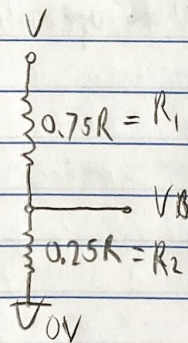 V
0.75R = R1
VB
0.25R = R2
0V